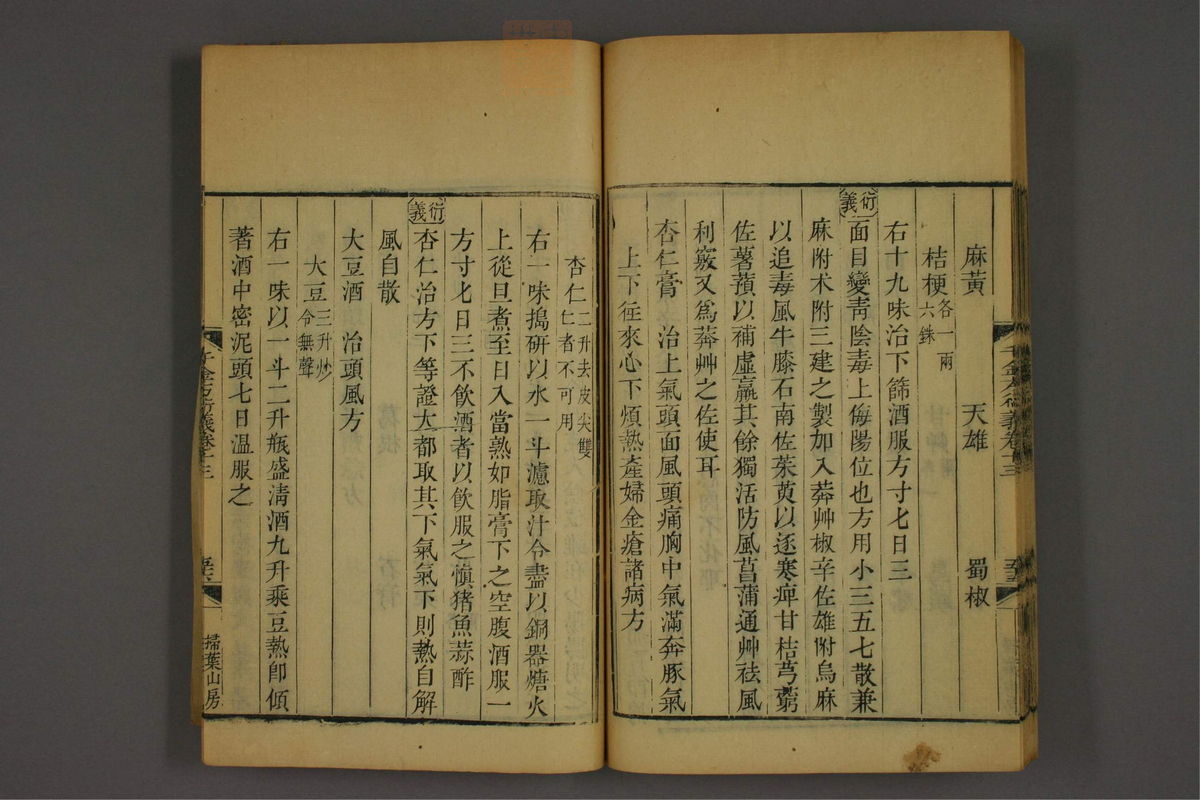 麻黃 天雄 蜀椒
桔梗各一兩六銖
右十九味治下篩酒服方寸匕日三
衍義
面目變靑陰毒上侮陽位也方用小三五七散兼
麻附术附三建之製加入莽艸椒辛佐雄附烏麻
以追毒風牛膝石南佐茱萸以逐寒痺甘桔芎藭
佐薯蕷以補虛羸其餘獨活防風菖蒲通艸祛風
利竅又爲莽艸之佐使耳
杏仁膏 治上氣頭面風頭痛胸中氣滿奔豚氣
上下往來心下煩熱產婦金瘡諸病方
千金方衍義卷十三
杏仁二升去皮尖雙仁者不可用
右一味搗研以水一斗濾取汁令盡以銅器煻火
上從旦煮至日入當熟如脂膏下之空腹酒服一
方寸匕日三不飮酒者以飮服之愼猪魚蒜酢
衍義
杏仁治方下等證大都取其下氣氣下則熱自解
風自散
大豆酒 治頭風方
大豆三升炒令無聲
右一味以一斗二升瓶盛淸酒九升乘豆熱卽傾
著酒中密泥頭七日溫服之
千金方衍義卷十三
掃葉山房